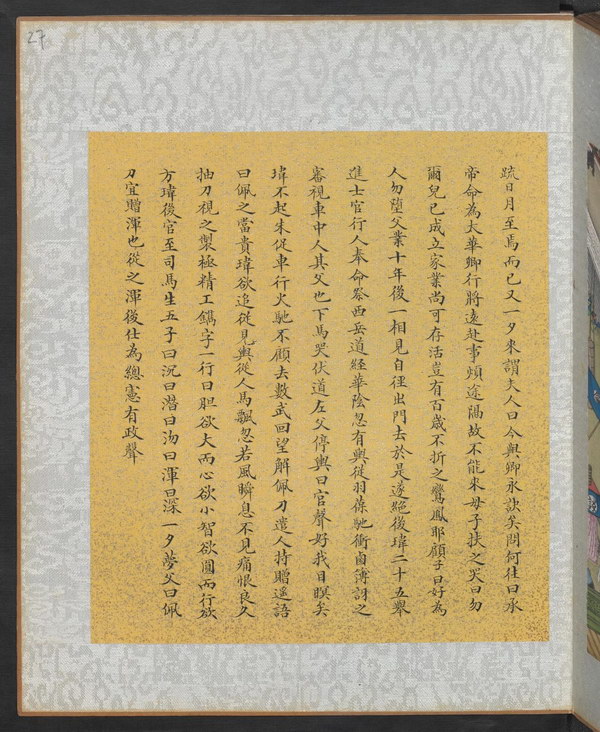 27
疏日月至焉而已又一夕來謂夫人曰今與卿永訣矣問何往曰承
帝命為太華卿行將遠赴事煩途隔故不能來母子扶之哭曰勿
爾兒已成立家業尚可存活豈有百歲不折之鸞鳳耶顧子曰好為
人勿墮父業十年後一相見自徑出門去於是遂絕後瑋二十五舉
進士官行人奉命祭西岳道經華陰忽有輿從羽葆馳衝鹵簿訝之
審視車中人其父也下馬哭伏道左父停輿曰官聲好我目瞑矣
瑋不起朱促車行火馳不顧去數武回望解佩刀遣人持贈遙語
曰佩之當貴瑋欲追從見輿從人馬飄忽若風瞬息不見痛恨良久
抽刀視之製極精工鐫字一行曰胆欲大而心欲小智欲圓而行欲
方瑋後官至司馬生五子曰沉曰潛曰沕曰渾曰深一夕夢父曰佩
刀宜贈渾也從之渾後仕為總憲有政聲